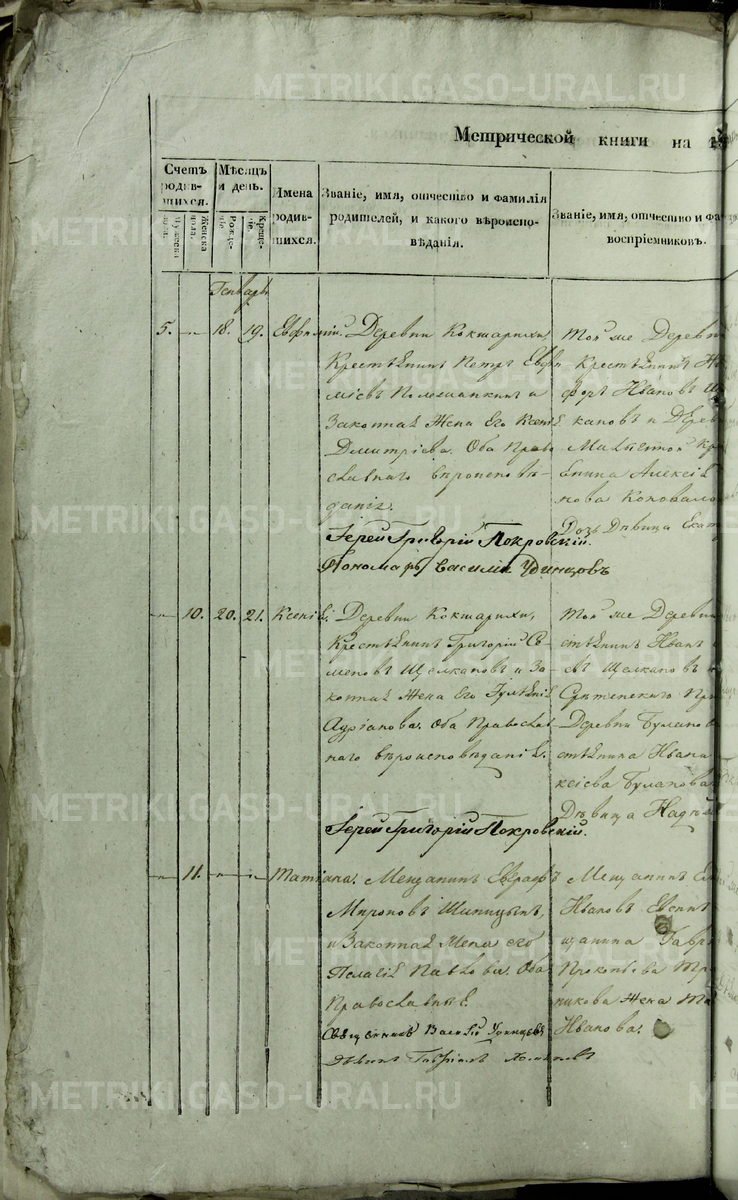 METRIKI.GASO-URAL.RU
Метрической книги на
Счетъ родив-шихся.
Мужеска пола.
Женска пола.
Мѣсяцъ и день.
Рожде-
Креще-
Имена родив-шихся.
Званіе, имя, отчество и фамилія
родителей, и какого вѣроиспо-
вѣданія.
Званіе, имя, отчество и фа
воспріемниковъ.
Генварь
5. 18. 19. Евфимій.
Деревни Кокшарихи,
Крестьянинъ Петръ Евфи
міевъ и
Законная Жена Его Ксенія
Димитріева. Оба Право
славнаго вѣроисповѣ-
данія.
Іерей Григорій Покровскій.
Пономарь Василій Удинцовъ
Той же Деревн
Крестьянинъ
форъ Ивановъ
кановъ и Дерев
Кре
янина Алексія
нова Коновало
Дочь Дѣвица Екат
10. 20. 21. Ксенія.
Деревни Кокшарихи,
Крестьянинъ Григорій Се-
меновъ Щелкановъ и За-
конная Жена Его Іуліанія
Адріанова. Оба Православ-
наго вѣроисповѣданія.
Іерей Григорій Покровскій.
Той же Деревни
стьянинъ Иванъ
въ Щелкановъ и
Срѣтенскаго При
Деревни Буланов
стьянина Ивана
ксіева Буланова
Дѣвица Надеж
11. Татіана.
Мещанинъ Евграфъ
Мироновъ Шипицынъ,
и Законная Жена его
Пелагія Павлова. Оба
Православныя.
Священникъ Василій Удинцевъ
Дьячекъ Гавріилъ
Мещанинъ
Ивановъ
щанина Гавр
Прокопьева
никова Жена
Иванова.